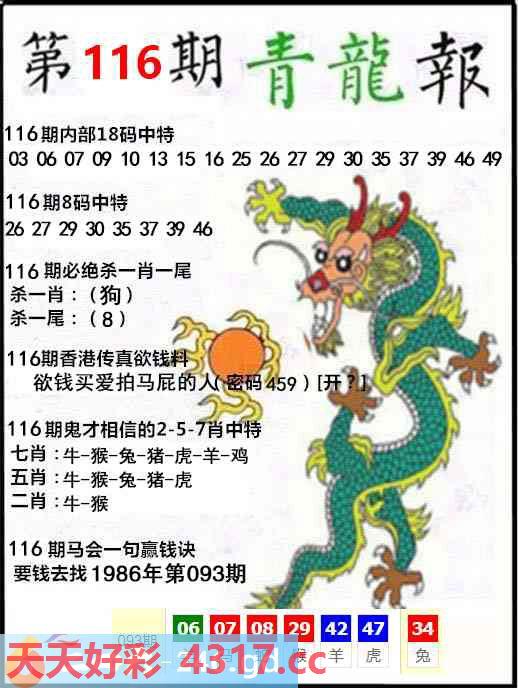 第116期 青龍報
116期内部18码中特
03 06 07 09 10 13 15 16 25 26 27 29 30 35 37 39 46 49
116期8码中特
26 27 29 30 35 37 39 46
116期必绝杀一肖一尾
杀一肖：（狗）
杀一尾：（8）
116期香港传真欲钱料
欲钱买爱拍马屁的人（密码459）[开？]
116期鬼才相信的2-5-7肖中特
七肖：牛-猴-兔-猪-虎-羊-鸡
五肖：牛-猴-兔-猪-虎
二肖：牛-猴
116期马会一句赢钱诀
要钱去找1986年第093期
06 07 08 29 42 47 34
093期 猴 羊 虎 兔
天天好彩 4317.cc